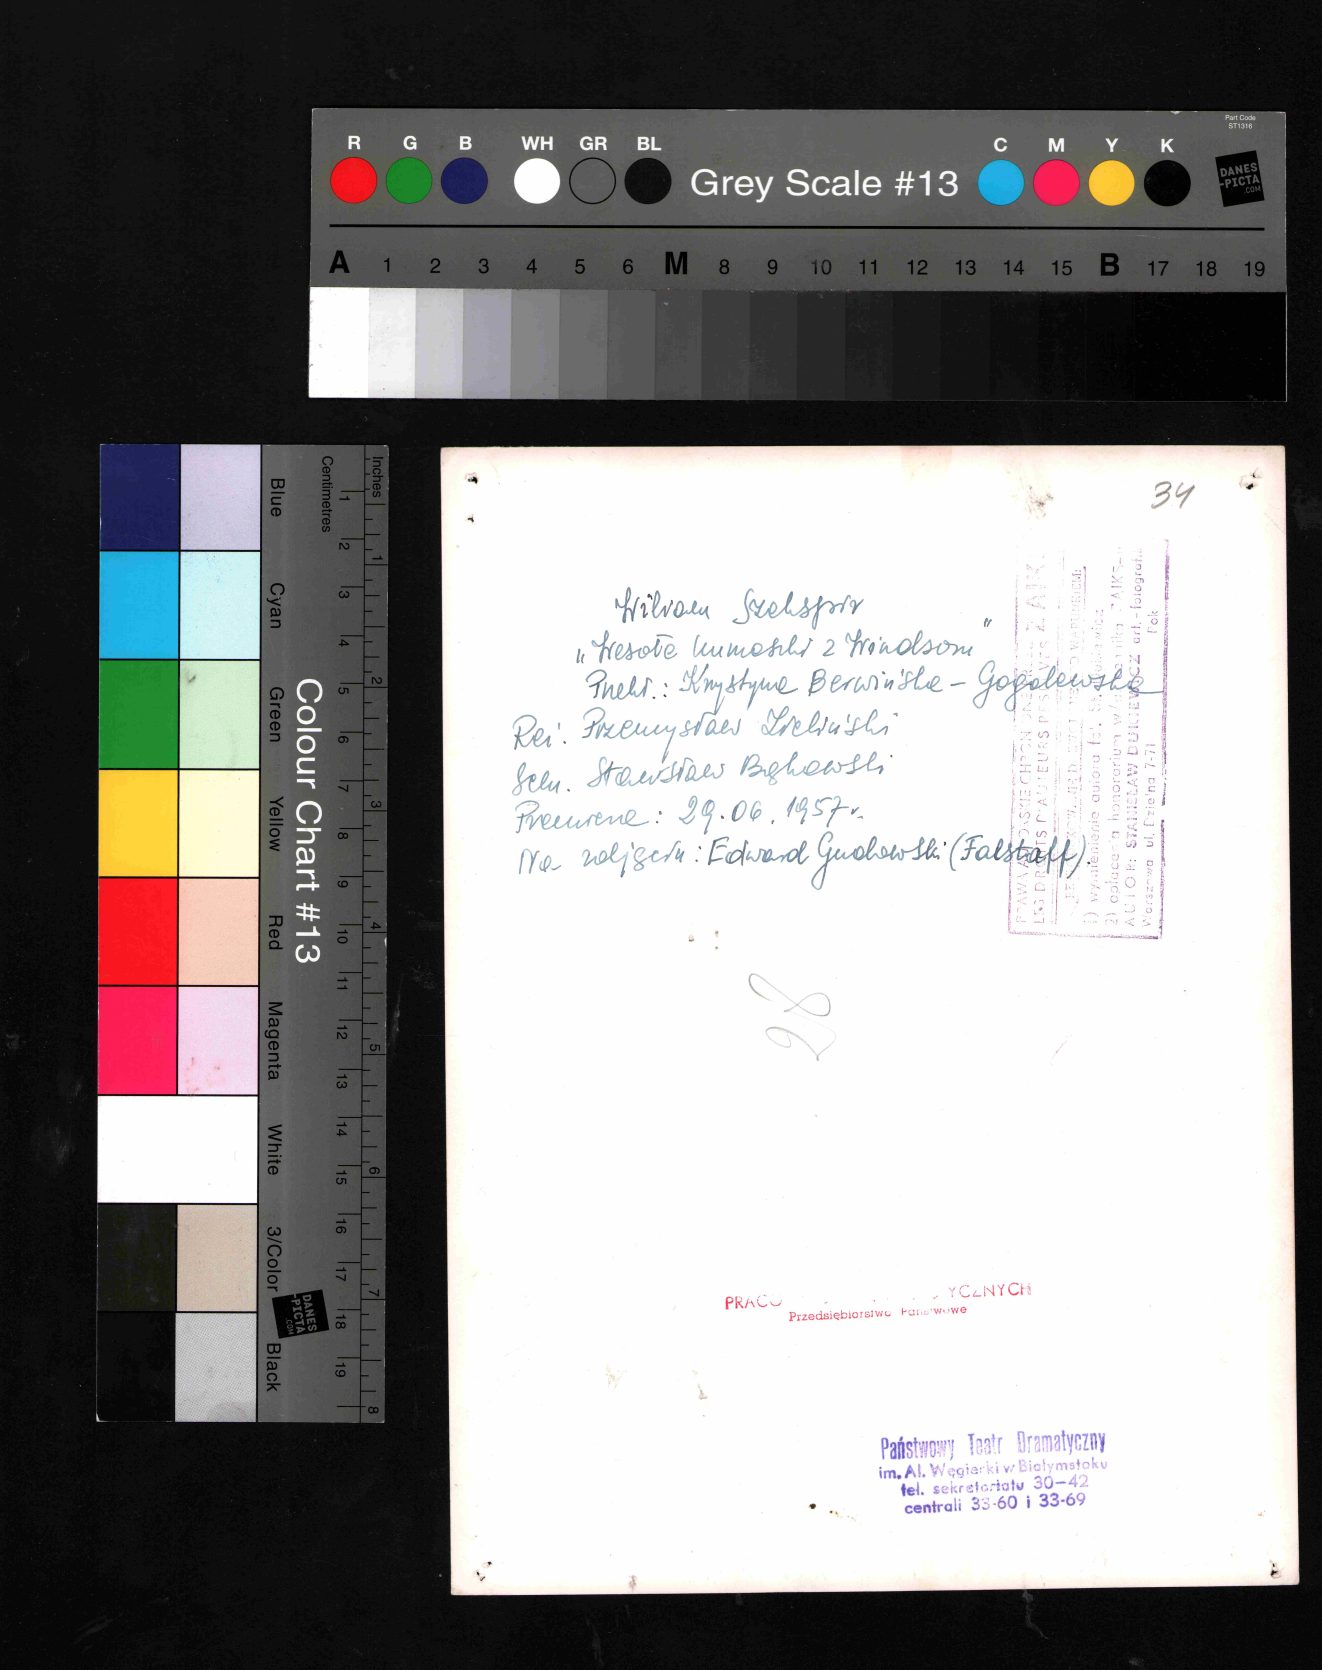 Part Code
ST1316
R G B WH GR BL Grey Scale #13 C M Y K
DANES
-PICTA
.COM
A 1 2 3 4 5 6 M 8 9 10 11 12 13 14 15 B 17 18 19
Colour Chart #13
Blue
Cyan
Green
Yellow
Red
Magenta
White
3/Color
Black
Centimetres
1 2 3 4 5 6 7 8 9 10 11 12 13 14 15 16 17 18 19
Inches
1 2 3 4 5 6 7 8
DANES
-PICTA
.COM
34
Wiliam Szekspir
„Wesołe kumoszki z Windsoru"
Przekł.: Krystyna Berwińska - Gogolewska
Reż. Przemysław Zieliński
Scen. Stanisław Bąkowski
Premiera: 29.06.1957r.
Na zdjęciu: Edward Guchowski (Falstaff).
LES DROITS D'AUTEURS RESERVES
1) wymienienie autora fot.
AUTOR: STANISŁAW art.-fotograf
Warszawa ul. Dzielna 7-71
28
Przedsiębiorstwo Państwowe
Państwowy Teatr Dramatyczny
im. Al. Węgierki w Białymstoku
tel. sekretariatu 30-42
centrali 33-60 i 33-69